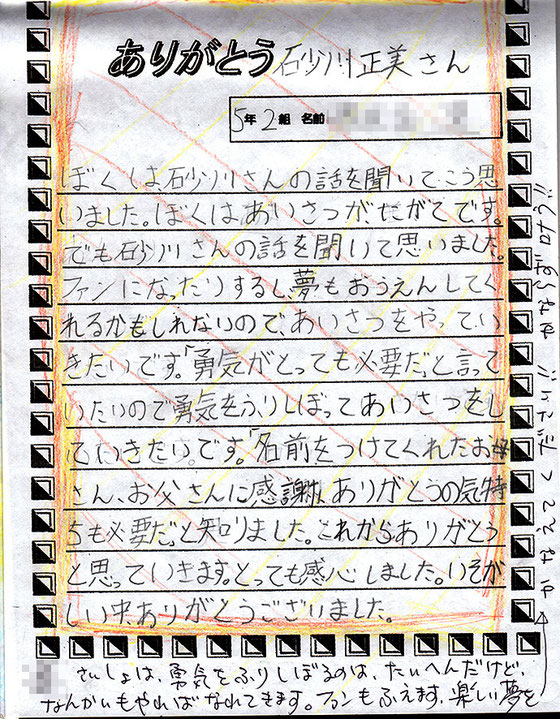 ありがとう 砂川正美さん
5年2組 名前
ぼくは砂川さんの話を聞いてこう思
いました。ぼくはあいさつがにがてです。
でも砂川さんの話を聞いて思いました。
ファンになったりするし、夢もおうえんしてく
れるかもしれないので、あいさつをやってい
きたいです。「勇気がとっても必要だ」と言って
いたいので勇気をふりしぼってあいさつをし
ていきたい。です。「名前をつけてくれたお母
さん、お父さんに感謝、ありがとうの気持
ちも必要だ」と知りました。これからありがとう
と思っていきます。とっても感心しました。いそが
しい中、ありがとうございました。
さいしょは、勇気をふりしぼるのは、たいへんだけど、
なんかいもやればなれてきます。ファンもふえます、楽しい夢を
かなえてください!! かならず